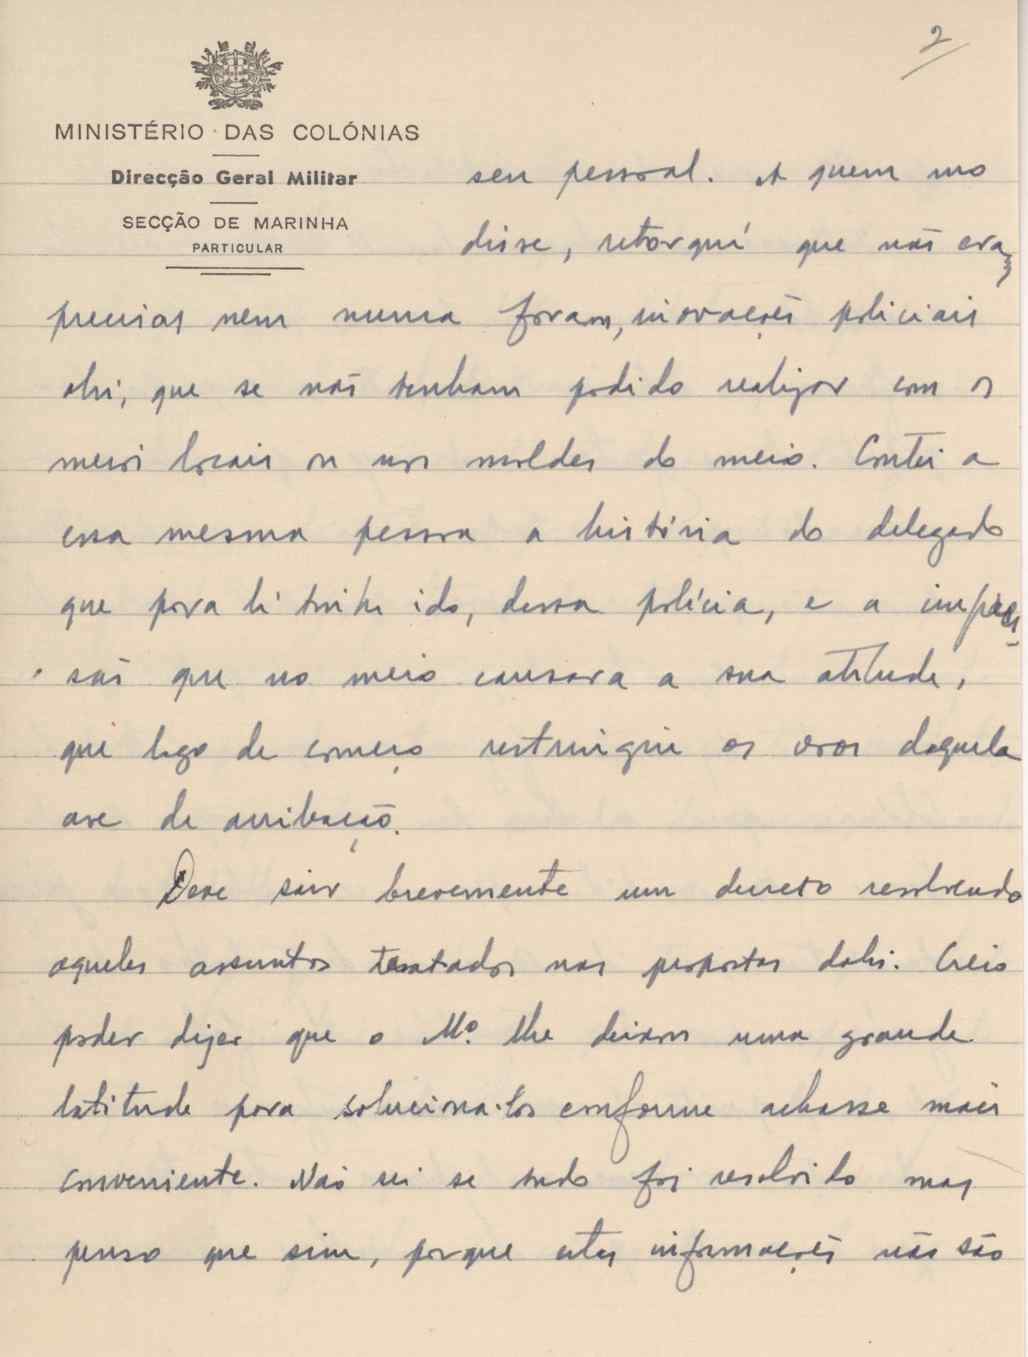 2
MINISTÉRIO DAS COLÓNIAS
Direcção Geral Militar
SECÇÃO DE MARINHA
PARTICULAR
seu pessoal. A quem mo
disse, retorqui que não eram
precisas nem nunca foram, inovações policiais
ahi, que se não tenham podido realizar com os
meios locais ou nos moldes do meio. Contei a
essa mesma pessoa a história do delegado
que para lá tinha ido, dessa polícia, e a impres-
são que no meio causara a sua atitude,
que logo de começo restringiu os voos daquela
ave de arribação.
Deve sair brevemente um decreto resolvendo
aqueles assuntos tratados nas propostas dahi. Creio
poder dizer que o Mº. lhe deixou uma grande
latitude para soluciona-los conforme achasse mais
conveniente. Não sei se tudo foi resolvido mas
penso que sim, porque estas informações não são